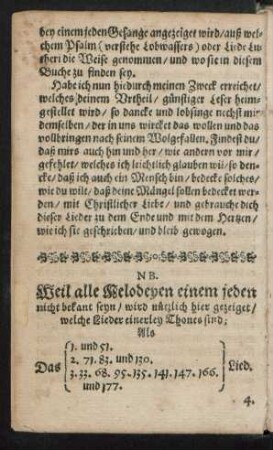 bey einem jeden Gesange angezeiget wird/ auß wel-
chem Psalm (verstehe Lobwassers) oder Liede Lu-
theri die Weise genommen/ und wo sie in diesem
Buche zu finden sey.
Habe ich nun hiedurch meinen Zweck erreichet/
welches deinem Urtheil/ günstiger Leser heim-
gestellet wird/ so dancke und lobsinge nechst mir
demselben/ der in uns wircket das wollen und das
vollbringen nach seinem Wolgefallen. Findest du/
daß mirs auch hin und her/ wie andern vor mir/
gefehlet/ welches ich leichtlich glauben wil/ so den-
cke/ daß ich auch ein Mensch bin/ bedecke solches/
wie du wilt/ daß deine Mängel sollen bedecket wer-
den/ mit Christlicher Liebe/ und gebrauche dich
dieser Lieder zu dem Ende und mit dem Hertzen/
wie ich sie geschrieben/ und bleib gewogen.
NB.
Weil alle Melodeyen einem jeden
nicht bekant seyn/ wird nützlich hier gezeiget/
welche Lieder einerley Thones sind;
Als
1. und 51.
2. 71. 83. und 130.
Das 3. 33. 68. 95. 135. 141. 147. 166. Lied.
und 177.
4.